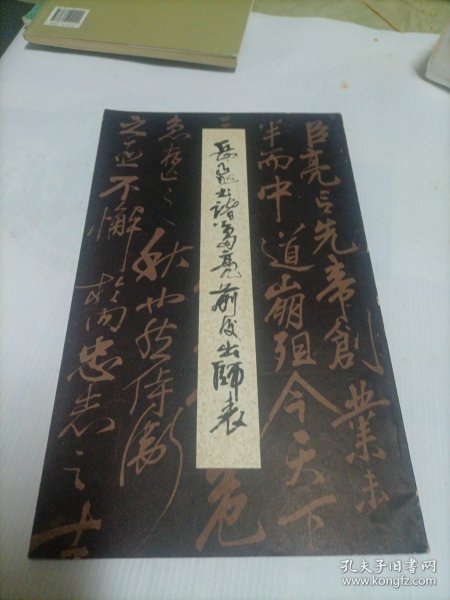 岳飛書諸葛亮前後出師表
臣亮言先帝創業未
半而中道崩殂今天下
三
危
急存亡之秋也然侍衛
之臣不懈於内忠志之士
孔夫子旧书网
www.kongfz.com